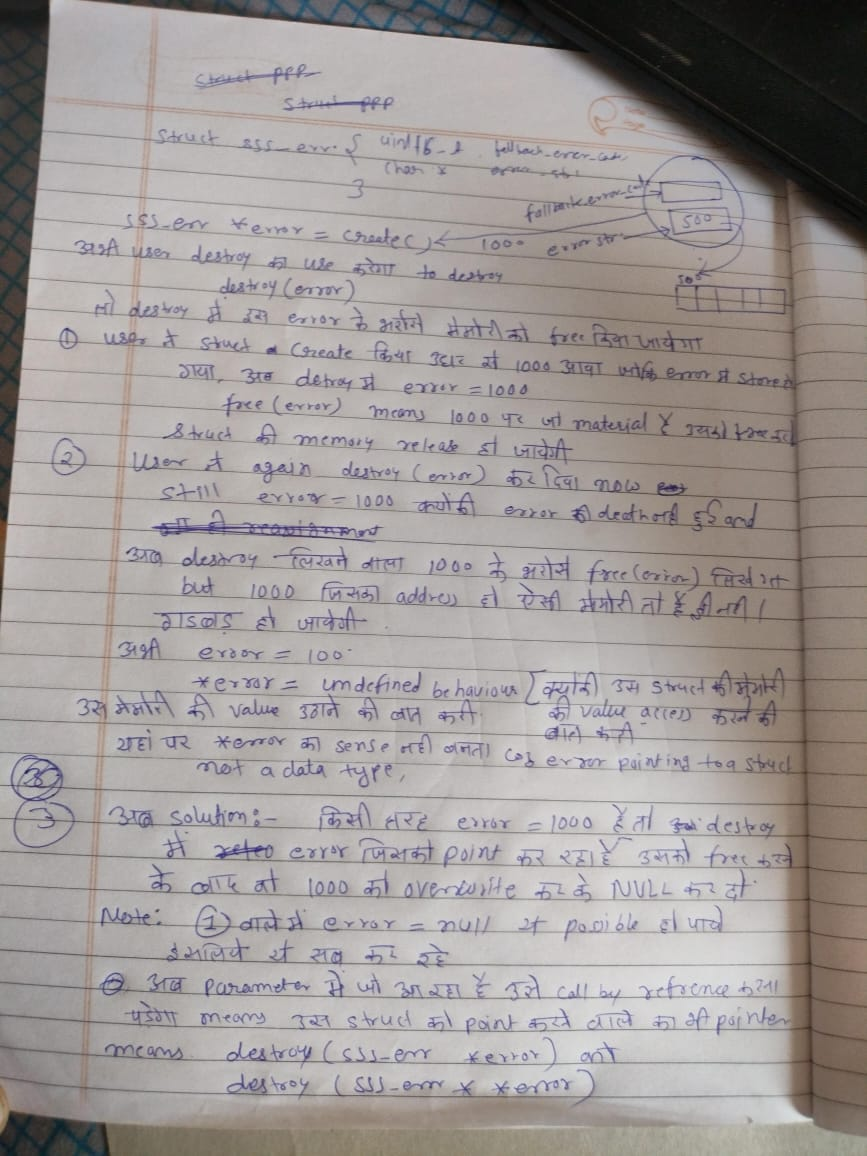 struct sss_err {  uint16_t  fallback_error_code
char *  error_str
}
fallback_error_code
500
sss_err *error = create()  1000  error str
500
अभी user destroy का use करेगा to destroy
destroy (error)
तो destroy में इस error के भरोसे मेमोरी को free किया जायेगा
① user ने struct create किया उधर से 1000 आया जोकि error में store हो
गया, अब detroy में error = 1000
free (error) means 1000 पर जो material है उसको free
struct की memory release हो जायेगी
② User ने again destroy (error) कर दिया now
still error = 1000 क्योंकी error की death नहीं हुई and
अब destroy लिखने वाला 1000 के भरोसे free (error) लिखेगा
but 1000 जिसका address हो ऐसी मेमोरी तो है ही नहीं।
गडबड हो जायेगी
अभी error = 100
*error = undefined behaviour [ क्योंकी उस struct की मेमोरी
उस मेमोरी की value उठाने की बात करी.  की value access करने की
बात करी
यहां पर *error का sense नही बनता coz error pointing to a struct
not a data type,
③ अब solution:- किसी तरह error = 1000 है तो destroy
में error जिसको point कर रहा है उसको free करने
के बाद जो 1000 को overwrite कर के NULL कर दो
Note: ① वाले में error = null ये posible हो पाये
इसलिये ये सब कर रहे
अब parameter मे जो आ रहा है उसे call by refrence करना
पडेगा means उस struct को point करने वाले का भी pointer
means destroy (sss-err *error)
destroy (sss-err * *error)